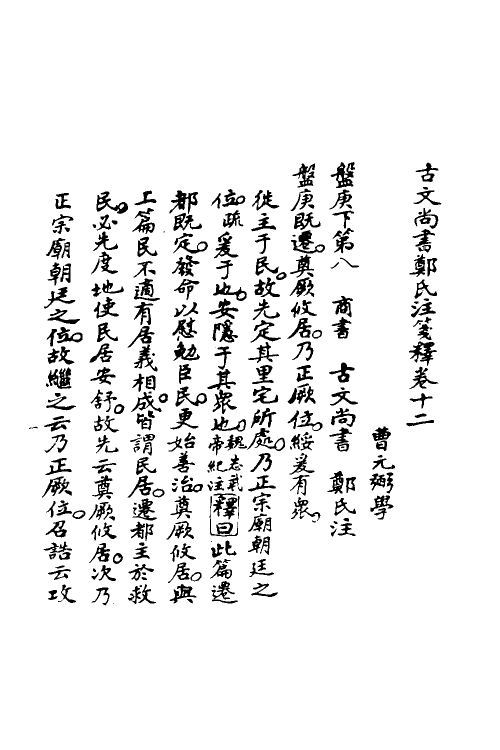 古文尚書鄭氏注箋釋卷十二
曹元弼學
盤庚下第八　商書　古文尚書　鄭氏注
盤庚既遷。奠厥攸居。乃正厥位。綏爰有衆。
徙主于民。故先定其里宅所處。乃正宗廟朝廷之
位。疏爰于也。安隱于其衆也。魏志武帝紀注釋曰此篇遷
都既定。發命以慰勉臣民。更始善治。奠厥攸居。與
上篇民不適有居義相成。皆謂民居。遷都主於救
民。必先度地使民居安舒。故先云奠厥攸居。次乃
正宗廟朝廷之位。故繼之云乃正厥位。召誥云攻